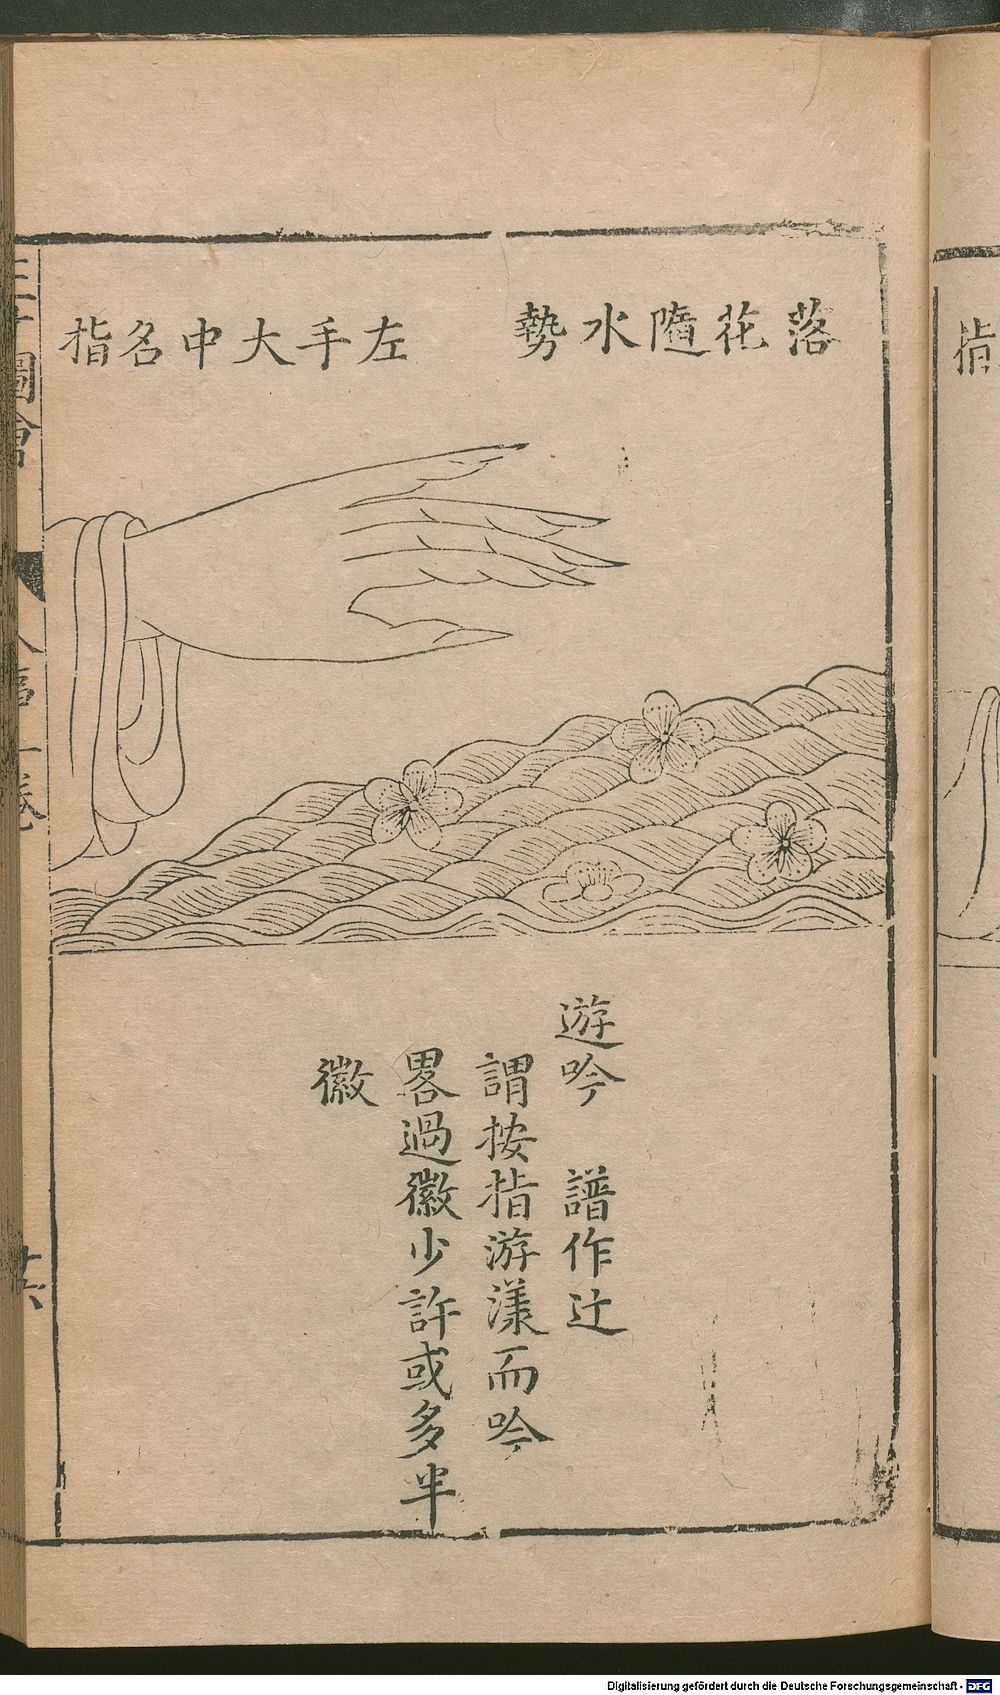 落花隨水勢
左手大中名指
遊吟 譜作辻
謂按指游漾而吟
畧過徽少許或多半
徽
三才圖會
人事一卷
廿六
指
Digitalisierung gefördert durch die Deutsche Forschungsgemeinschaft - DFG